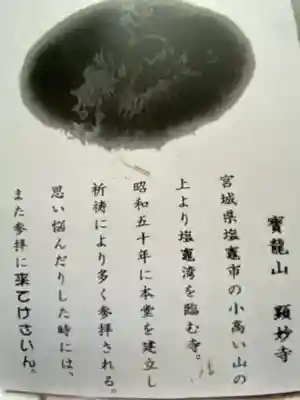 寶龍山 顕妙寺
宮城県塩竈市の小高い山の
上より塩竈湾を臨む寺。
昭和五十年に本堂を建立し
祈祷により多く参拝される。
思い悩んだりした時には、
また参拝に来てけさいん。